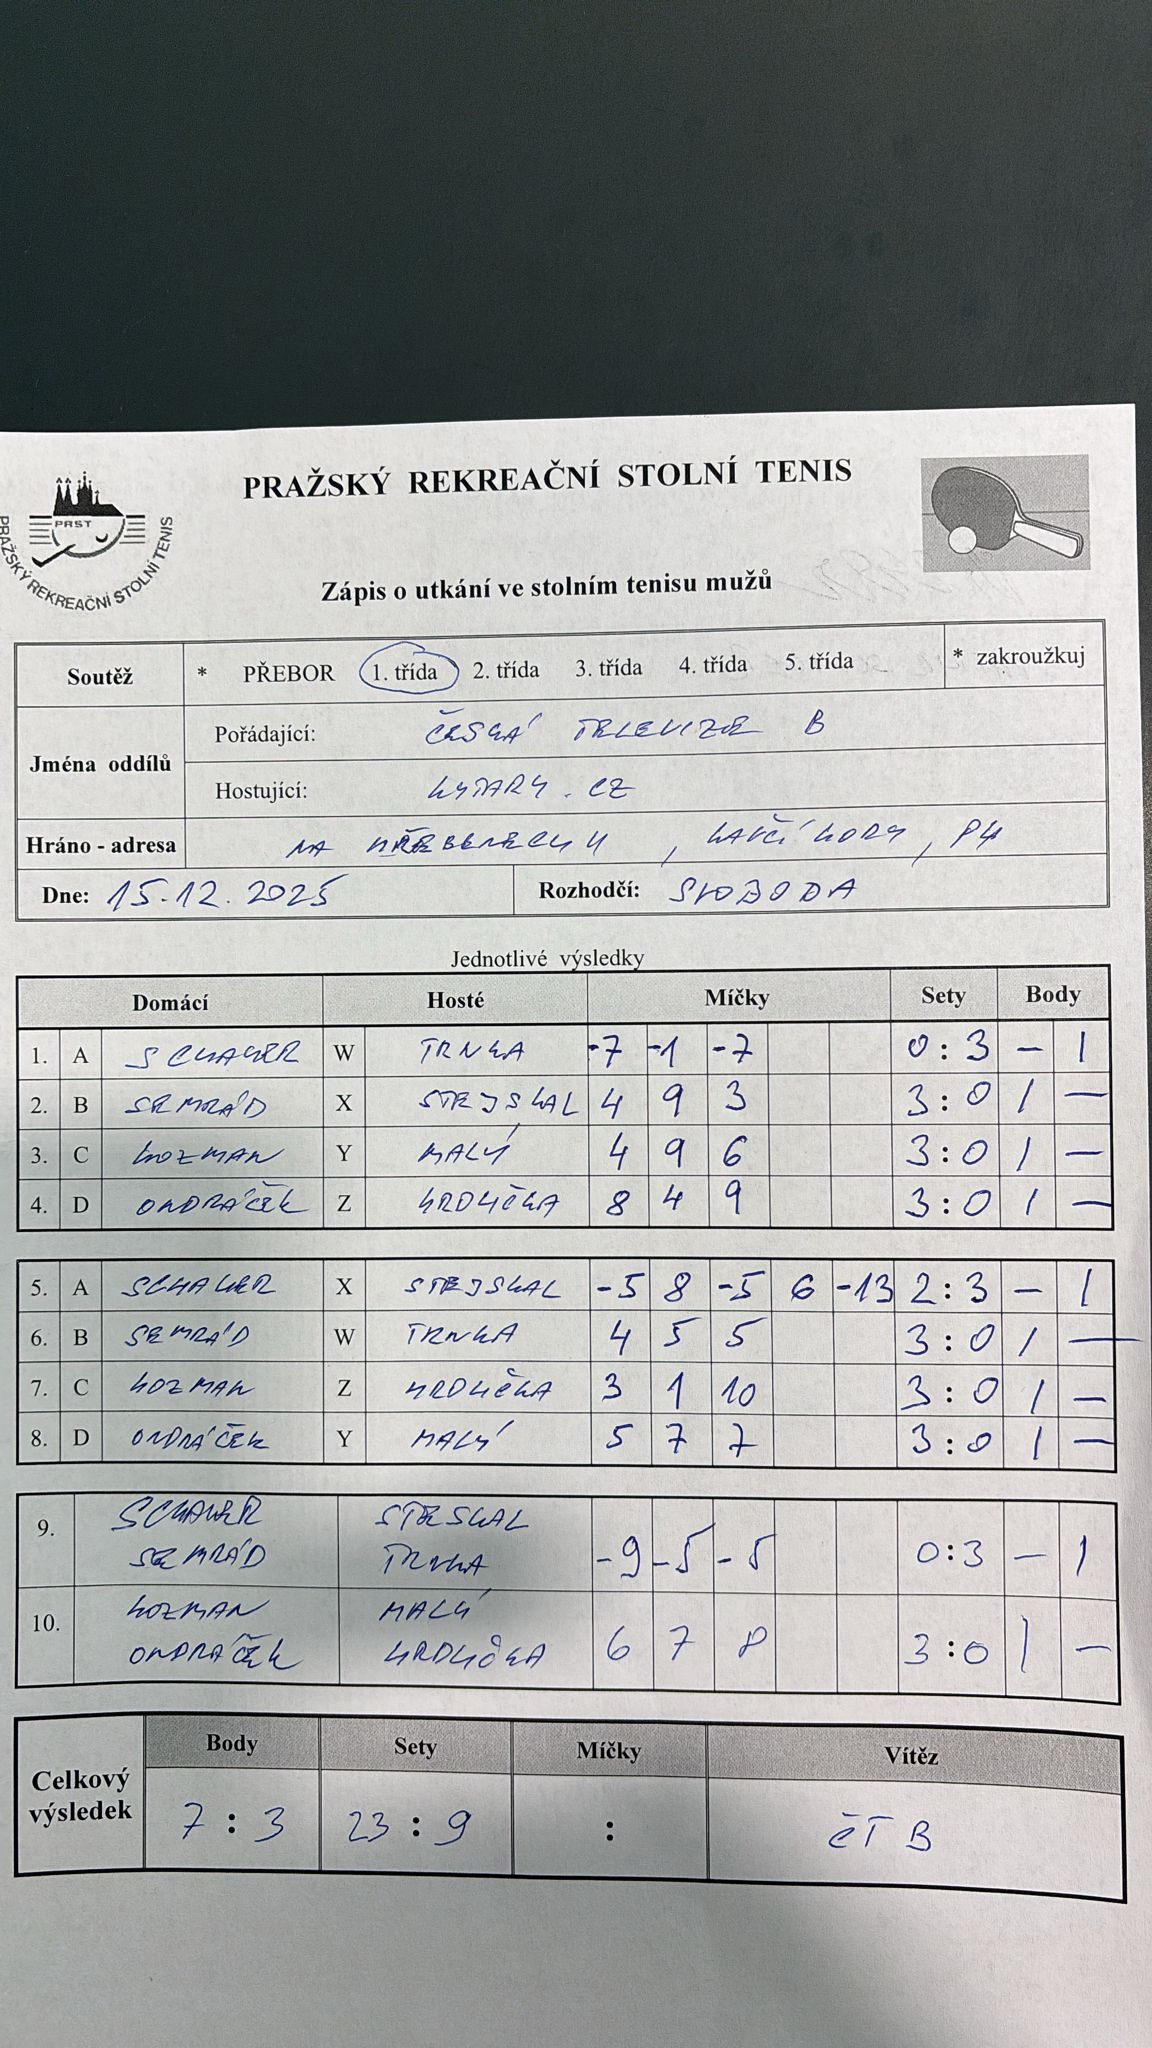 PRAŽSKÝ REKREAČNÍ STOLNÍ TENIS
PRST
PRAŽSKÝ REKREAČNÍ STOLNÍ TENIS
Zápis o utkání ve stolním tenisu mužů
Soutěž * PŘEBOR 1. třída 2. třída 3. třída 4. třída 5. třída * zakroužkuj
Jména oddílů
Pořádající: ČESKÁ TELEVIZE B
Hostující: KYTARY.CZ
Hráno - adresa NA HŘEBENECH II, KAVČÍ HORY, P4
Dne: 15.12.2025 Rozhodčí: SVOBODA
Jednotlivé výsledky
Domácí Hosté Míčky Sety Body
1. A SCHAUER W TRNKA -7 -1 -7 0:3 – 1
2. B SEMRÁD X STEJSKAL 4 9 3 3:0 1 –
3. C KOZMAN Y MALÝ 4 9 6 3:0 1 –
4. D ONDRÁČEK Z HRDLIČKA 8 4 9 3:0 1 –
5. A SCHAUER X STEJSKAL -5 8 -5 6 -13 2:3 – 1
6. B SEMRÁD W TRNKA 4 5 5 3:0 1 –
7. C KOZMAN Z HRDLIČKA 3 1 10 3:0 1 –
8. D ONDRÁČEK Y MALÝ 5 7 7 3:0 1 –
9. SCHAUER STESKAL
SEMRÁD TRNKA -9 -5 -5 0:3 – 1
10. KOZMAN MALÝ
ONDRÁČEK HRDLIČKA 6 7 8 3:0 1 –
Celkový výsledek
Body Sety Míčky Vítěz
7:3 23:9 : ČT B